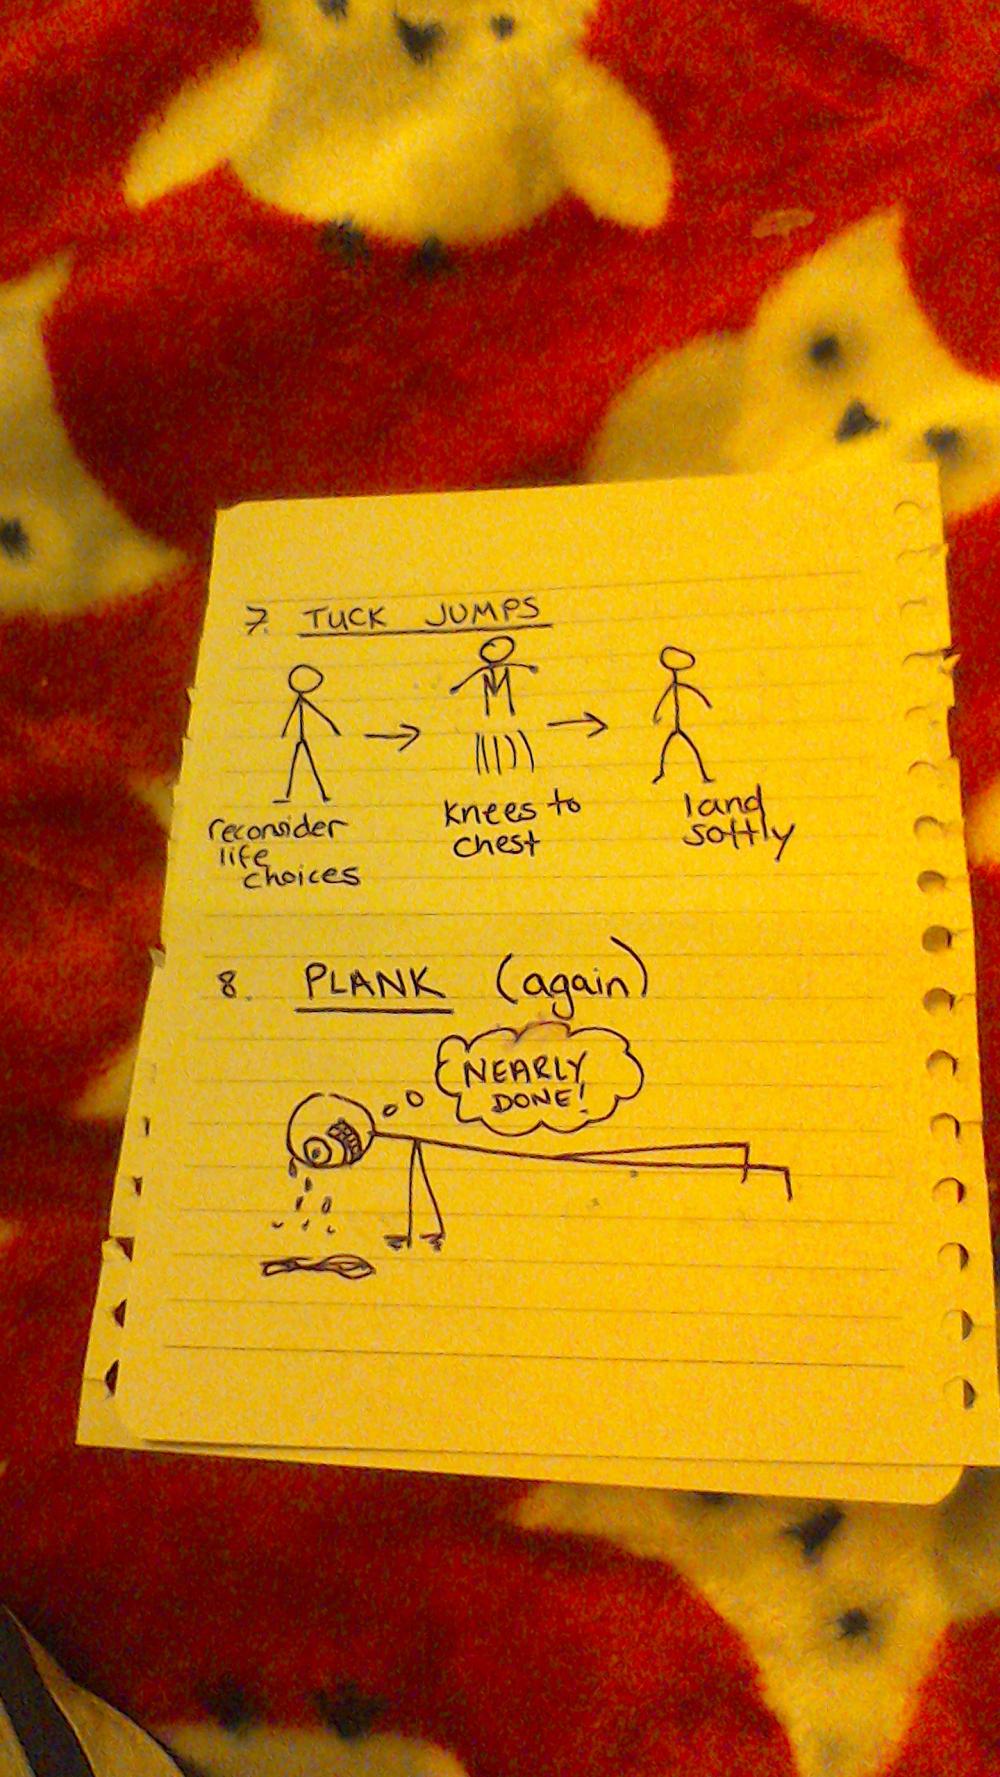 7. TUCK JUMPS
reconsider
life
choices
knees to
chest
land
softly
8. PLANK (again)
NEARLY
DONE!